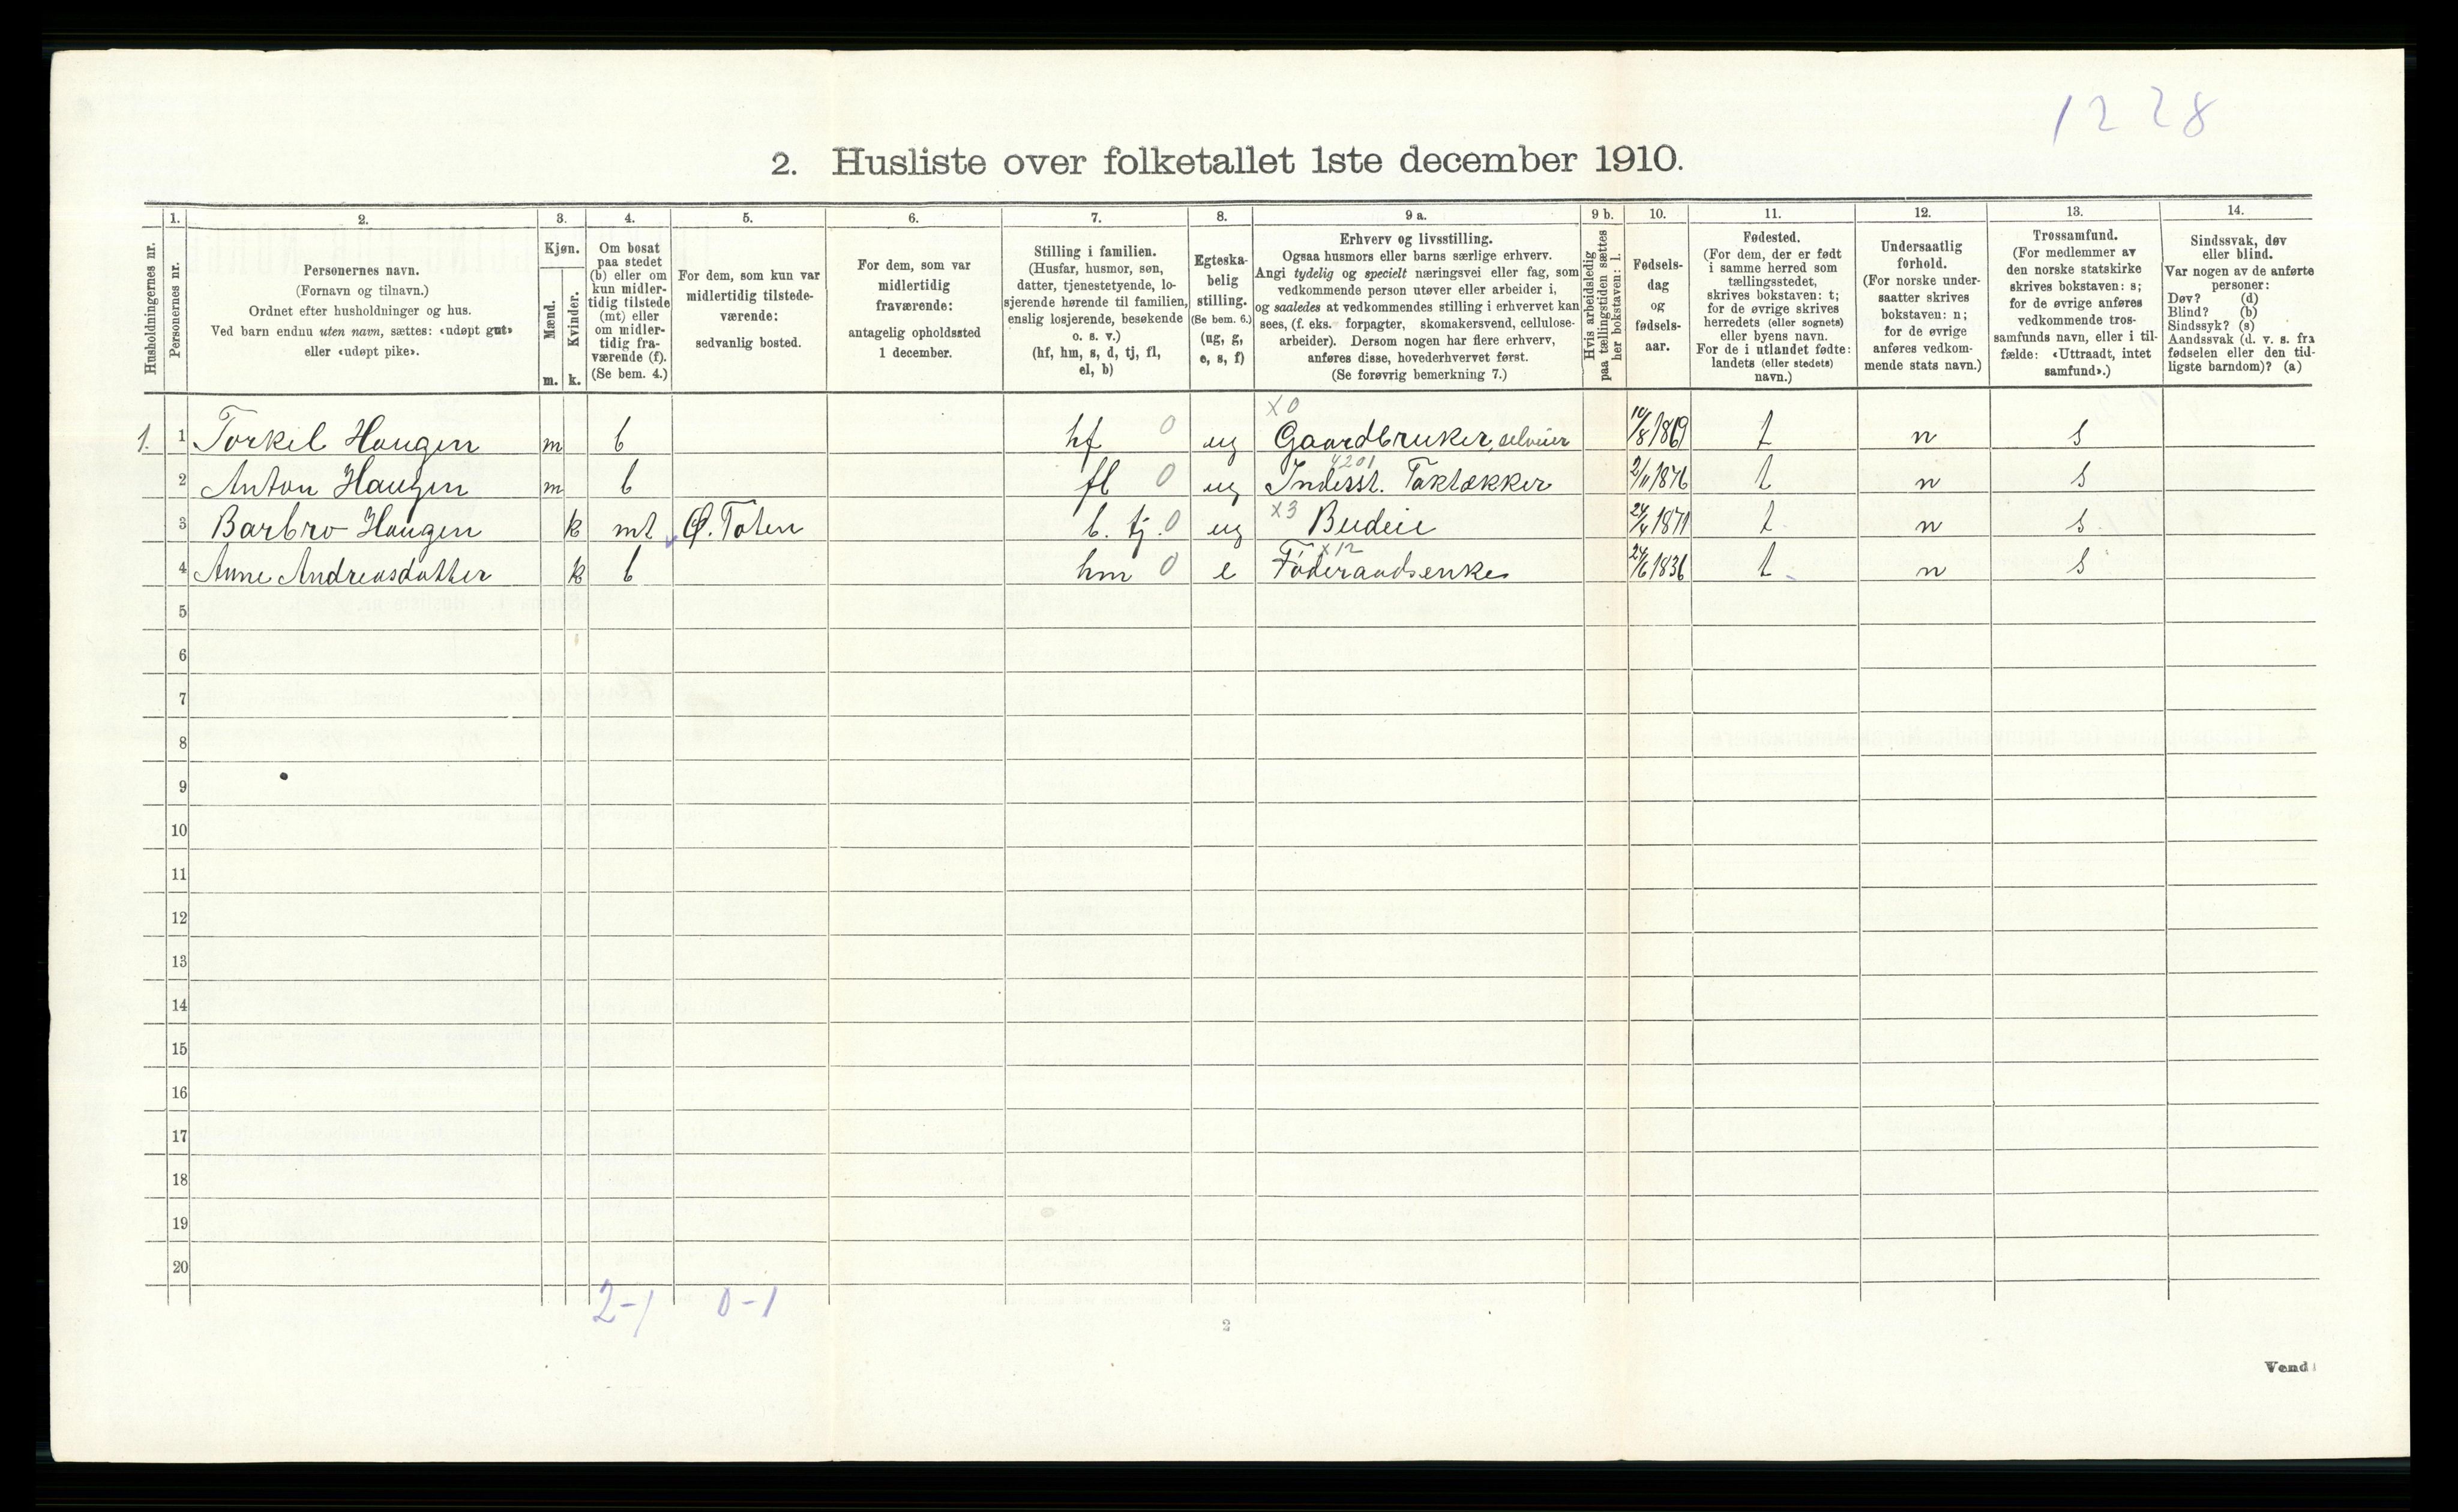 1228
2. Husliste over folketallet 1ste december 1910.
Husholdningernes nr.
1.
Personernes nr.
2.
Personernes navn.
(Fornavn og tilnavn.)
Ordnet efter husholdninger og hus.
Ved barn endnu uten navn, sættes: «udøpt gut»
eller «udøpt pike».
3.
Kjøn.
Mænd.
Kvinder.
m. k.
4.
Om bosat
paa stedet
(b) eller om
kun midler-
tidig tilstede
(mt) eller
om midler-
tidig fra-
værende (f).
(Se bem. 4.)
5.
For dem, som kun var
midlertidig tilstede-
værende:
sedvanlig bosted.
6.
For dem, som var
midlertidig
fraværende:
antagelig opholdssted
1 december.
7.
Stilling i familien.
(Husfar, husmor, søn,
datter, tjenestetyende, lo-
sjerende hørende til familien,
enslig losjerende, besøkende
o. s. v.)
(hf, hm, s, d, tj, fl,
el, b)
8.
Egteska-
belig
stilling.
(Se bem. 6.)
(ug, g,
e, s, f)
9 a.
Erhverv og livsstilling.
Ogsaa husmors eller barns særlige erhverv.
Angi tydelig og specielt næringsvei eller fag, som
vedkommende person utøver eller arbeider i,
og saaledes at vedkommendes stilling i erhvervet kan
sees, (f. eks. forpagter, skomakersvend, cellulose-
arbeider). Dersom nogen har flere erhverv,
anføres disse, hovederhvervet først.
(Se forøvrig bemerkning 7.)
9 b.
Hvis arbeidsledig
paa tællingstiden sættes
her bokstaven: l.
10.
Fødsels-
dag
og
fødsels-
aar.
11.
Fødested.
(For dem, der er født
i samme herred som
tællingsstedet,
skrives bokstaven: t;
for de øvrige skrives
herredets (eller sognets)
eller byens navn.
For de i utlandet fødte:
landets (eller stedets)
navn.)
12.
Undersaatlig
forhold.
(For norske under-
saatter skrives
bokstaven: n;
for de øvrige
anføres vedkom-
mende stats navn.)
13.
Trossamfund.
(For medlemmer av
den norske statskirke
skrives bokstaven: s;
for de øvrige anføres
vedkommende tros-
samfunds navn, eller i til-
fælde: «Uttraadt, intet
samfund».)
14.
Sindssvak, døv
eller blind.
Var nogen av de anførte
personer:
Døv? (d)
Blind? (b)
Sindssyk? (s)
Aandssvak (d. v. s. fra
fødselen eller den tid-
ligste barndom)? (a)
x0
1. 1 Torkil Haugen m b hf 0 ug Gaardbruker, selveier 10/8 1869 t n s
4201
2 Anton Haugen m b fl 0 ug Indesst. Taktækker 2/11 1876 t n s
3 Barbro Haugen k mt Ø. Toten b. tj. 0 ug x3 Budeie 24/4 1871 t n s
x12
4 Anne Andreasdatter k b hm 0 e Føderaadsenke 24/6 1836 t n s
5
6
7
8
9
10
11
12
13
14
15
16
17
18
19
20
2-1 0-1
2
Vend!